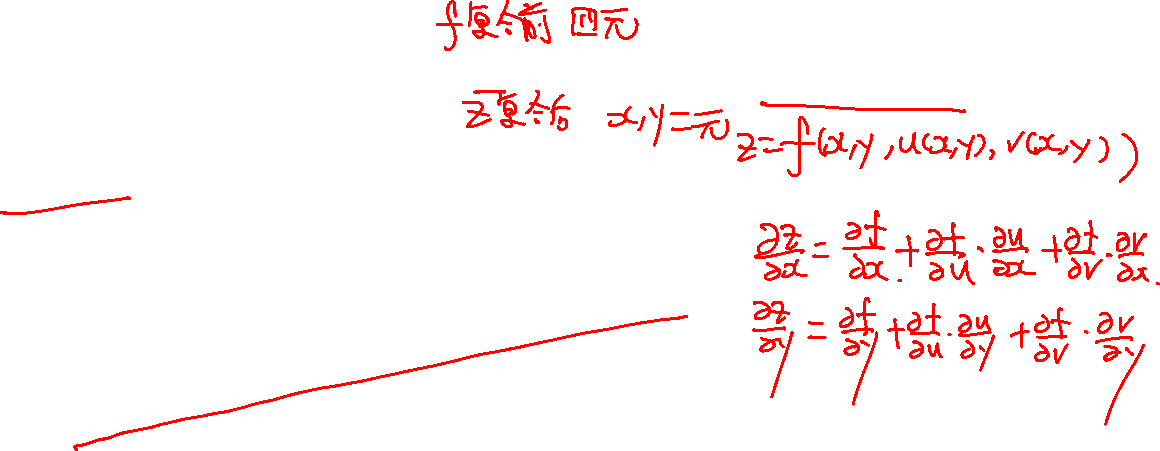 f复合前 四元
z复合后 x,y二元
z=f(x,y,u(x,y),v(x,y))
∂z/∂x=∂f/∂x+∂f/∂u·∂u/∂x+∂f/∂v·∂v/∂x.
∂z/∂y=∂f/∂y+∂f/∂u·∂u/∂y+∂f/∂v·∂v/∂y